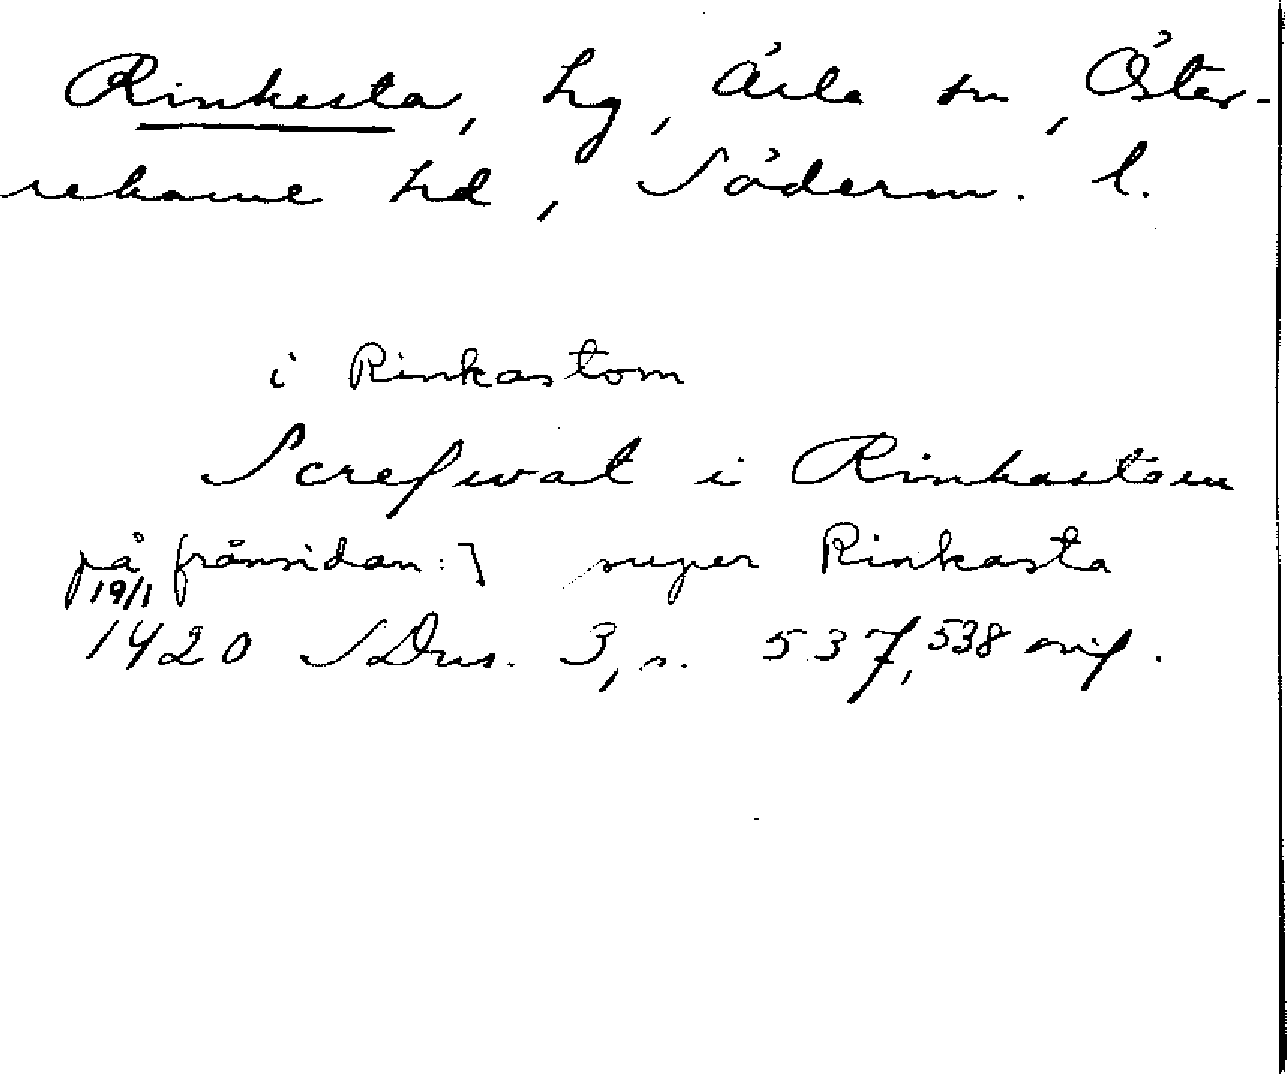 Rinkesta, hg, Ärla sn, Öster-
rekarne hd, Söderm. l.
i Rinkastom
Screfwat i Rinkastom
på frånsidan:] super Rinkasta
19/1
1420 SDns. 3, s. 537, 538 orig.